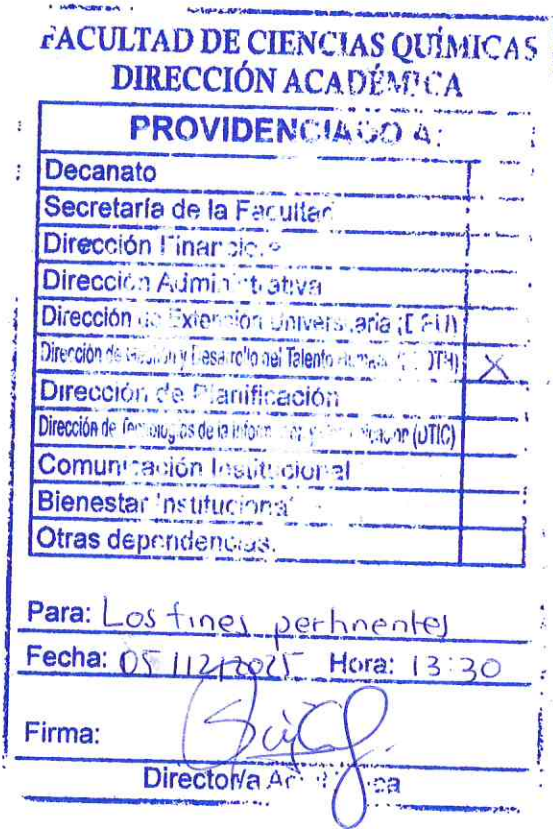 FACULTAD DE CIENCIAS QUÍMICAS
DIRECCIÓN ACADÉMICA
PROVIDENCIADO A:
Decanato
Secretaría de la Facultad
Dirección Financiera
Dirección Administrativa
Dirección de Extensión Universitaria (DEU)
Dirección de Gestión y Desarrollo del Talento Humano X
Dirección de Planificación
Dirección de Tecnologías de la Información y Comunicación (UTIC)
Comunicación Institucional
Bienestar Institucional
Otras dependencias.
Para: Los fines pertinentes
Fecha: 05/12/2025 Hora: 13:30
Firma:
Director/a Académica